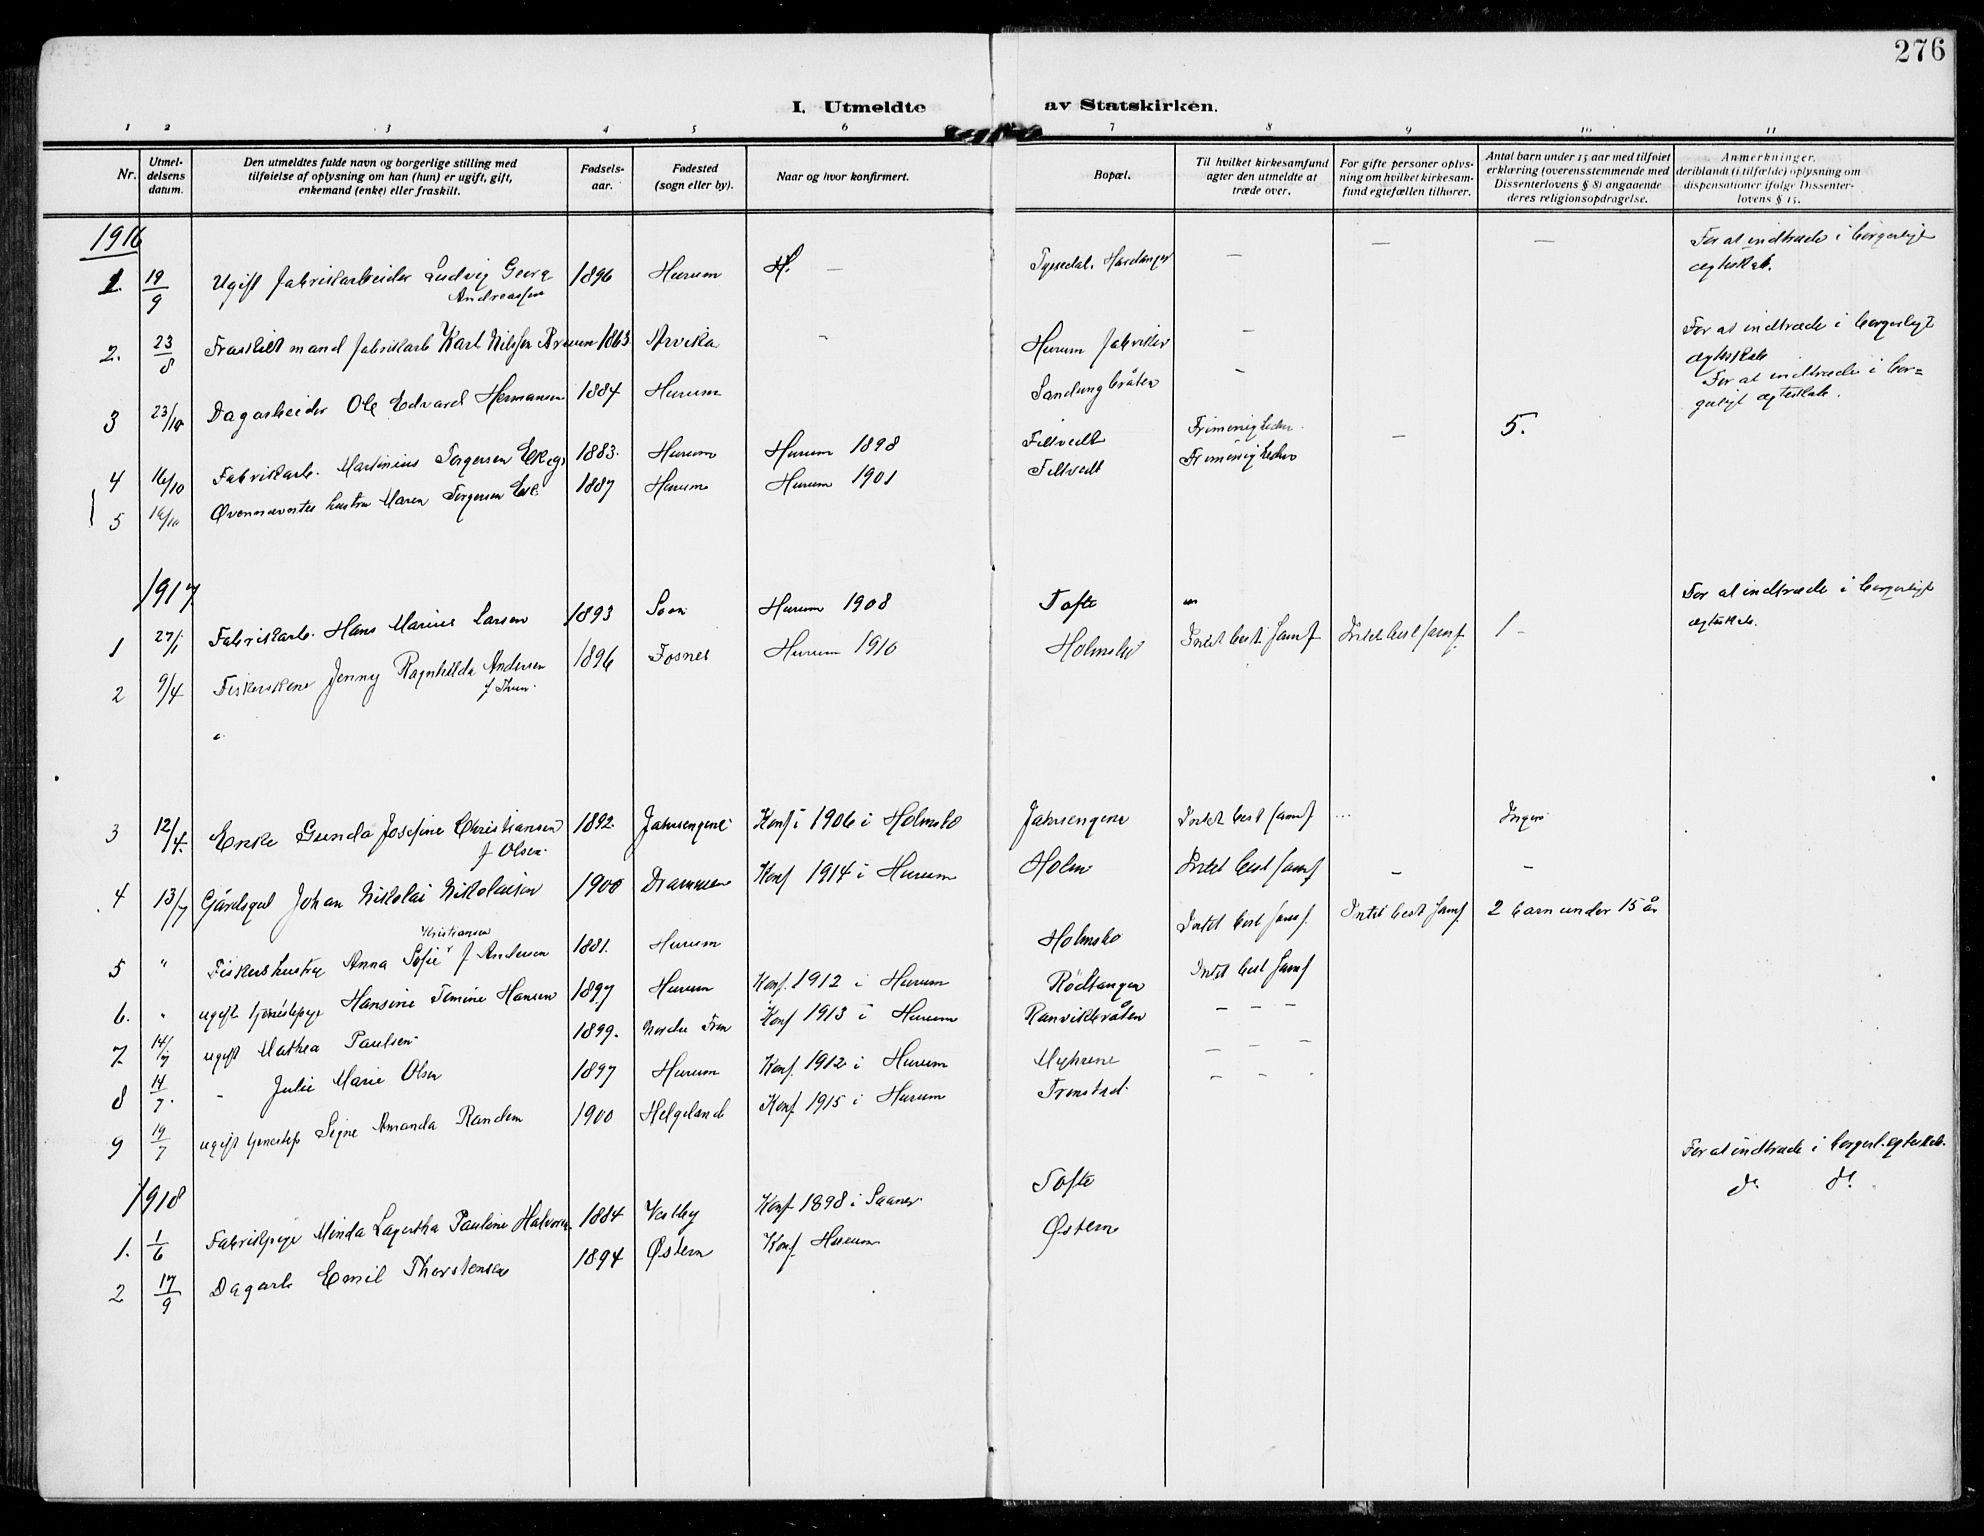 276
I. Utmeldte av Statskirken.
1 2 3 4 5 6 7 8 9 10 11
Nr. | Utmel-delsens datum. | Den utmeldtes fulde navn og borgerlige stilling med tilføielse af oplysning om han (hun) er ugift, gift, enkemand (enke) eller fraskilt. | Fødsels-aar. | Fødested (sogn eller by). | Naar og hvor konfirmert. | Bopæl. | Til hvilket kirkesamfund agter den utmeldte at træde over. | For gifte personer oplys-ning om hvilket kirkesam-fund egtefællen tilhører. | Antal barn under 15 aar med tilføiet erklæring (overensstemmende med Dissenterlovens § 8) angaaende deres religionsopdragelse. | Anmerkninger, deriblandt (i tilfælde) oplysning om dispensationer ifølge Dissenter-lovens § 15.
1916
1. 19/9 Ugift Fabrikarbeider Ludvig Georg Andreassen 1896 Hurum H. — Tyssedal. Hardanger — — — For at indtræde i borgerligt ægteskab.
2. 23/8 Fraskilt mand fabrikarb Karl Nilssen 1863 Arvika - Hurum Fabriker - For at indtræde i borgerligt ægteskab
3 23/10 Dagarbeider Ole Edvard Hermansen 1884 Hurum Sandungbråten - For at indtræde i bor=gerligt ægteskab.
4 16/10 Fabrikarb. Martinius Torgersen 1883. Hurum Hurum 1898 Filtvedt Frimenigheden — 5.
5 16/10 Ovennævntes hustru Maren Torgersen 1887 Hurum Hurum 1901 Filtvedt Frimenigheden
1917
1 27/1 Fabrikarb. Hans Marius Larsen 1893 Soon Hurum 1908 Tofte " For at indtræde i borgerligt ægteskab.
2 9/4 Fiskerskone Jenny Ragnhilda Andersen 1896 Fosnes Hurum 1910 Holmsbo Intet best Samf Intet best samf. 1 -
3 12/4. Enke Gunda Josefine Christiansen f Olsen. 1892. Jahrsengene Konf i 1906 i Holmsbo Jahrsengene Intet best samf ... Ingen
4 13/7 Gårdsgut Johan Nikolai Nikolaisen 1900 Drammen Konf 1914 i Hurum Holm Intet best samf - -
5 " Fiskershustru Anna Sofie Kristiansen f Andersen 1881. Hurum Holmsbo Intet best samf. Intet best samf 2 barn under 15 år
6. " ugift tjenestepige Hansine Tomine Hansen 1897 Hurum Konf. 1912 i Hurum Rödtangen Intet best samf
7. 14/7 ugift Mathea Paulsen. 1899. Nordre Konf 1913 i Hurum Ranvikbråten - - -
8 14/7. " Julie Marie Olsen 1897 Hurum Konf. 1912 i Hurum Myhrene - - -
9 19/7 ugift tjenestep Signe Amanda Randem 1900 Helgeland Konf 1915 i Hurum Tronstad. - - -
1918
1. 1/6 Fabrikpige Minda Lagertha Pauline 1884 Vestby Konf 1898 i Saaner Tofte For at indtræde i borgerl. egteskab.
2 17/9 Dagarb Emil Thorstensen 1894 Østern Konf Hurum Østern do do